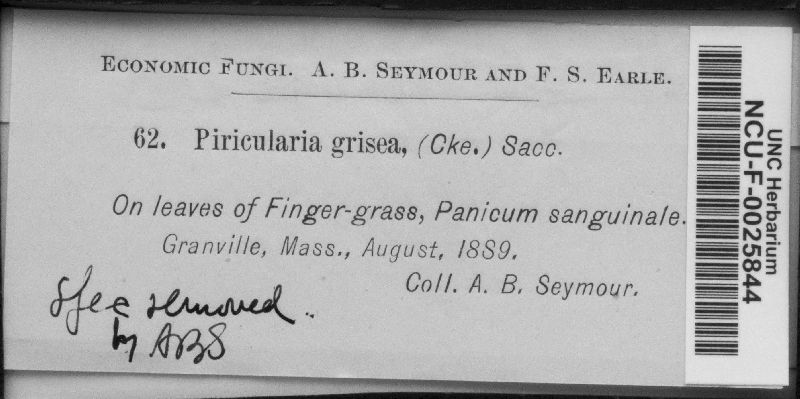 ECONOMIC FUNGI. A. B. SEYMOUR AND F. S. EARLE.
62. Piricularia grisea, (Cke.) Sacc.
On leaves of Finger-grass, Panicum sanguinale.
Granville, Mass., August, 1889.
Coll. A. B. Seymour.
removed
by ABS
UNC Herbarium
NCU-F-0025844